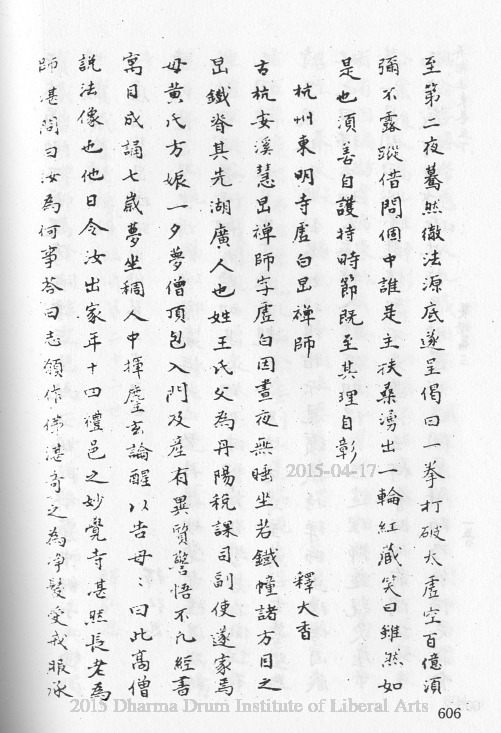 至第二夜驀然徹法源底遂呈偈曰一拳打破太虛空百億須
彌不露蹤借問個中誰是主扶桑湧出一輪紅藏笑曰雖然如
是也須善自護持時節既至其理自彰
杭州東明寺虛白旵禪師
釋大香
古杭安溪慧旵禪師字虛白因晝夜無睡坐若鐵幢諸方目之
旵鐵脊其先湖廣人也姓王氏父為丹陽稅課司副使遂家焉
母黃氏方娠一夕夢僧頂包入門及產有異質警悟不凡經書
寓目成誦七歲夢坐稠人中揮麈玄論醒以告母：曰此高僧
說法像也他日令汝出家年十四禮邑之妙覺寺湛然長老為
師湛問曰汝為何事荅曰志願作佛湛奇之為淨髮受戒服承
2015-04-17
2015 Dharma Drum Institute of Liberal Arts
606